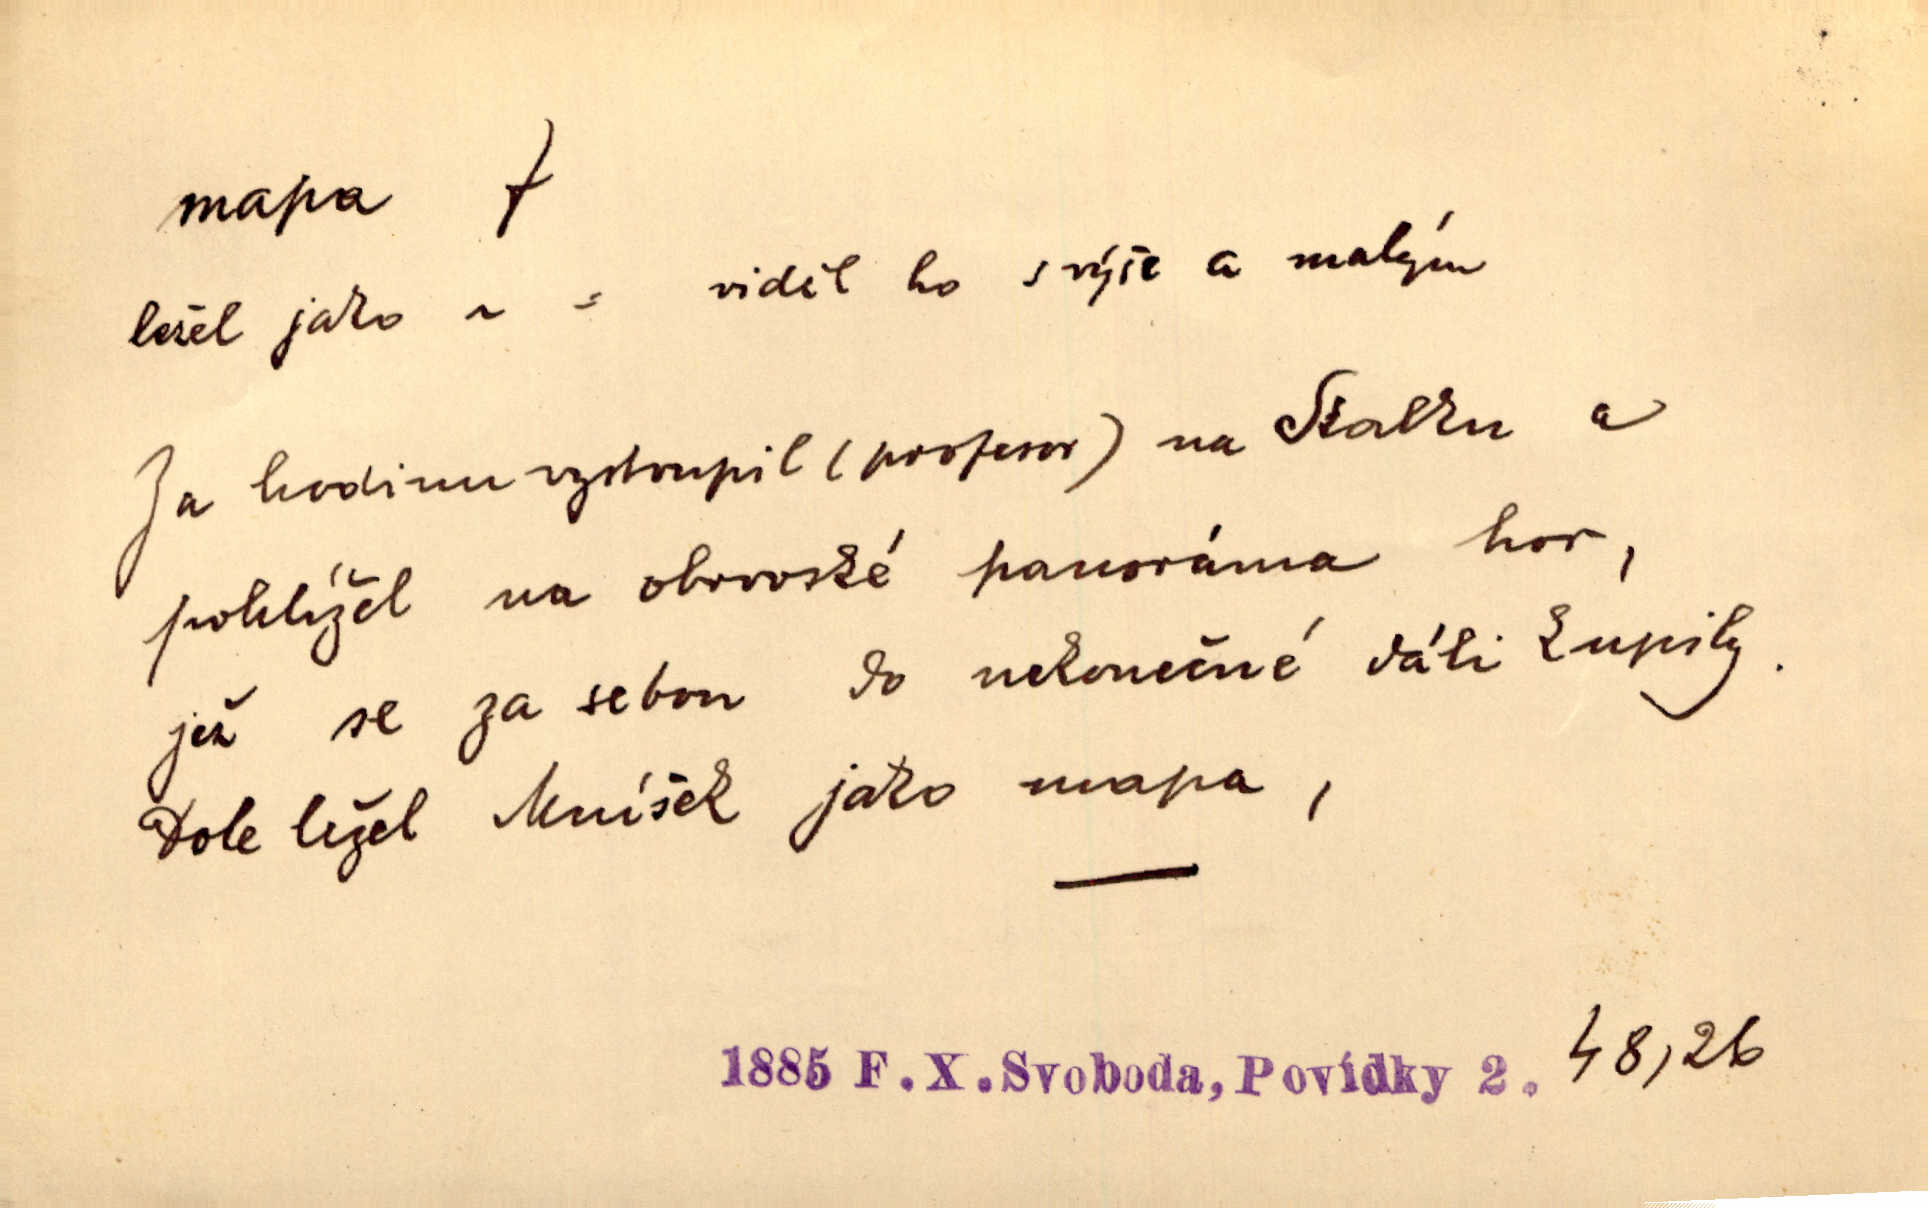 mapa f
ležel jako ~ = viděl ho s výše a malým
Za hodinu vzstoupil (profesor) na Skalku a
pohlížel na obrovské panoráma hor,
jež se za sebou do nekonečné dáli kupily.
Dole ležel Mníšek jako mapa,
1885 F.X.Svoboda, Povídky 2. 48,26